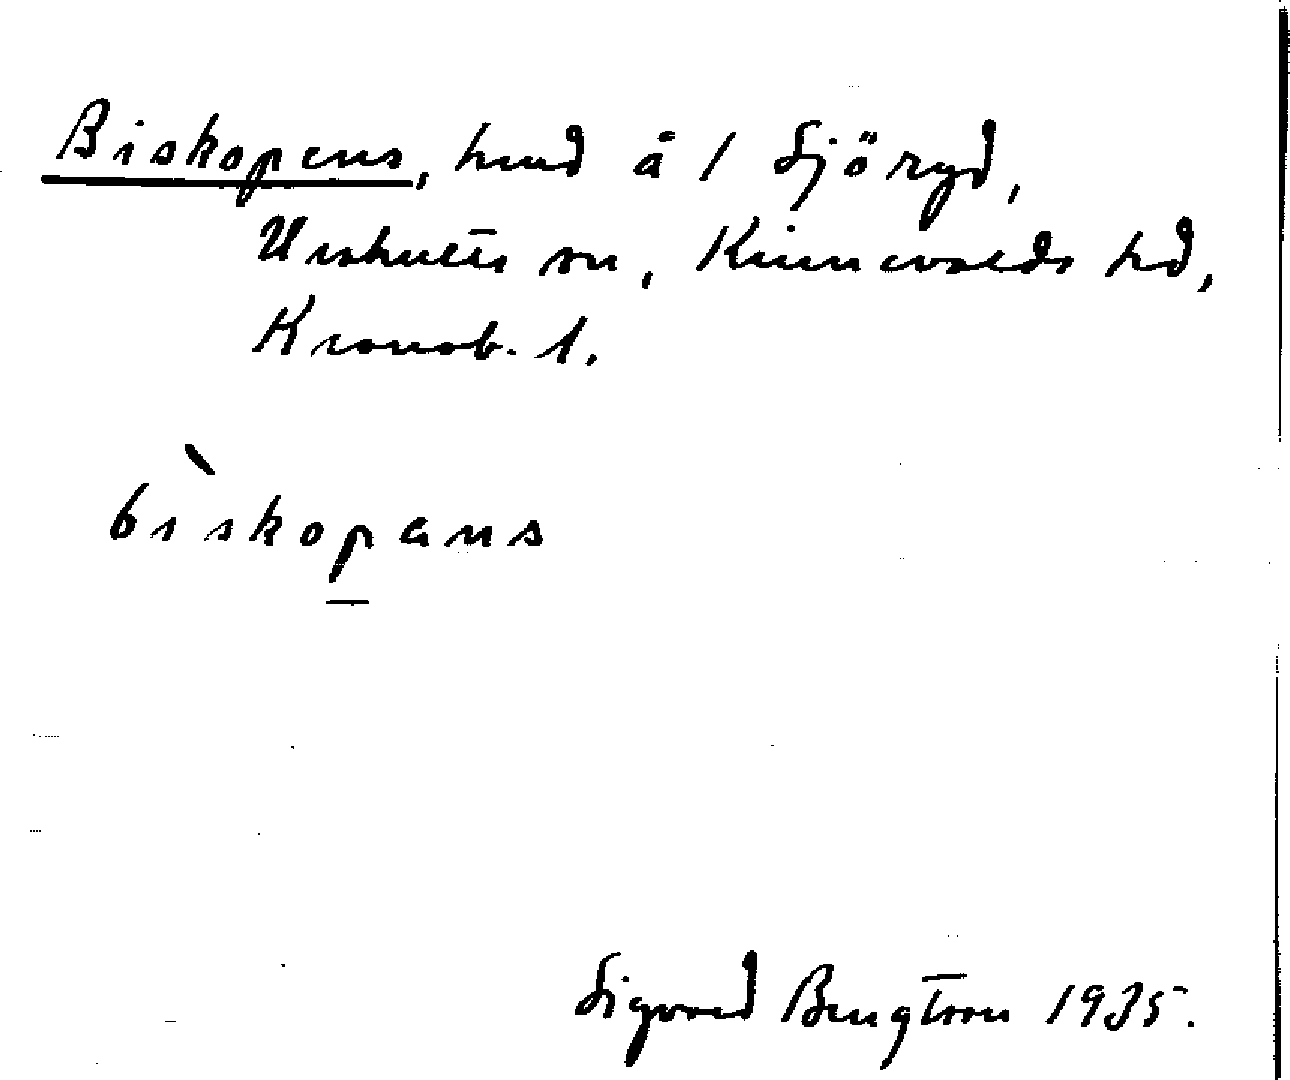 Biskopens, hmd å 1 Sjöryd,
Urshults sn, Kinnevalds hd,
Kronob. l.
bìskopans
Sigvard Bengtson 1935.